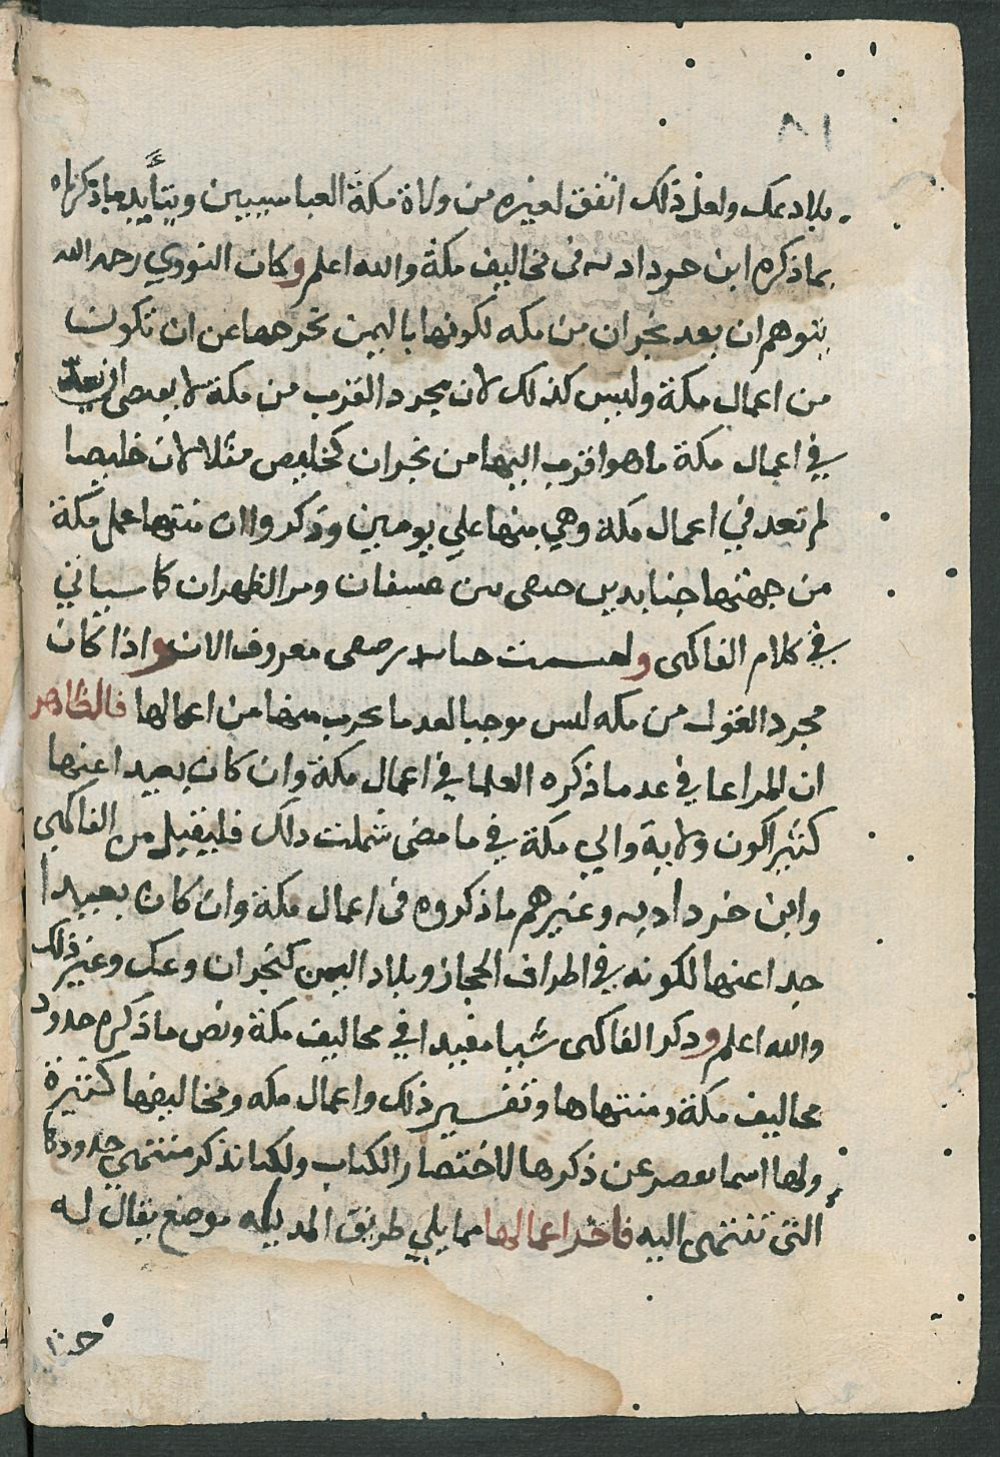 ٨١
بلاد عك ولعل ذلك اتفق لغيره من ولاة مكة العباسيين ويتأيد ماذكرناه
بماذكره ابن حردادبه فى مخاليف مكة والله اعلم وكان النووي رحمه الله
يتوهم ان بعد نجران من مكه لكونها باليمن تخرجها عن ان تكون
من اعمال مكة وليس كذلك لان مجرد القرب من مكة لا يقتضى ان يعد
في اعمال مكة ماهو اقرب اليها من نجران كخليص مثلا لان خليصا
لم تعد في اعمال مكة وهي منها علي يومين وذكروا ان منتها عمل مكة
من جهتها جنابذ بن صيفى بين عسفان ومر الظهران كاسياتي
في كلام الفاكهى وليست جنابذ بن صيفى معروفه الان واذا كان
مجرد القرب من مكه ليس موجبا لعد ما يقرب منها من اعمالها فالظاهر
ان المراعا في عد ماذكره العلما في اعمال مكة وان كان بعيدا عنها
كثيرا كون ولاية والي مكة في ما مضى شملت ذلك فليقبل من الفاكهى
وابن خردادبه وغيرهم ماذكروه فى اعمال مكة وان كان بعيدا
جدا عنها لكونه في اطراف الحجاز وبلاد اليمن كنجران وعك وغير ذلك
والله اعلم ودكر الفاكهى شيا مفيدا في مخاليف مكة ونص ماذكره حدود
مخاليف مكة ومنتهاها وتفسير ذلك واعمال مكه ومخاليفها كثيرة
ولها اسما نقصر عن ذكرها لاختصار الكتاب ولكنا نذكر منتهي حدودها
التى تنتهى اليه فاخر اعمالها مما يلي طريق المدينه موضع يقال له